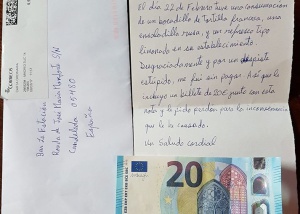 El día 22 de Febrero tuve una consumación
de un bocadillo de Tortilla francesa, una
ensaladilla rusa, y un refresco tipo
limonada en su establecimiento.
Desgraciadamente y por un despiste
estúpido, me fui sin pagar. Así que le
incluyo un billete de 20€ junto con esta
nota y le pido perdón por la inconveniencia
que le ha causado.
Un Saludo cordial
Bar La Estación
Ronda de
Candeleda 05480
España
20